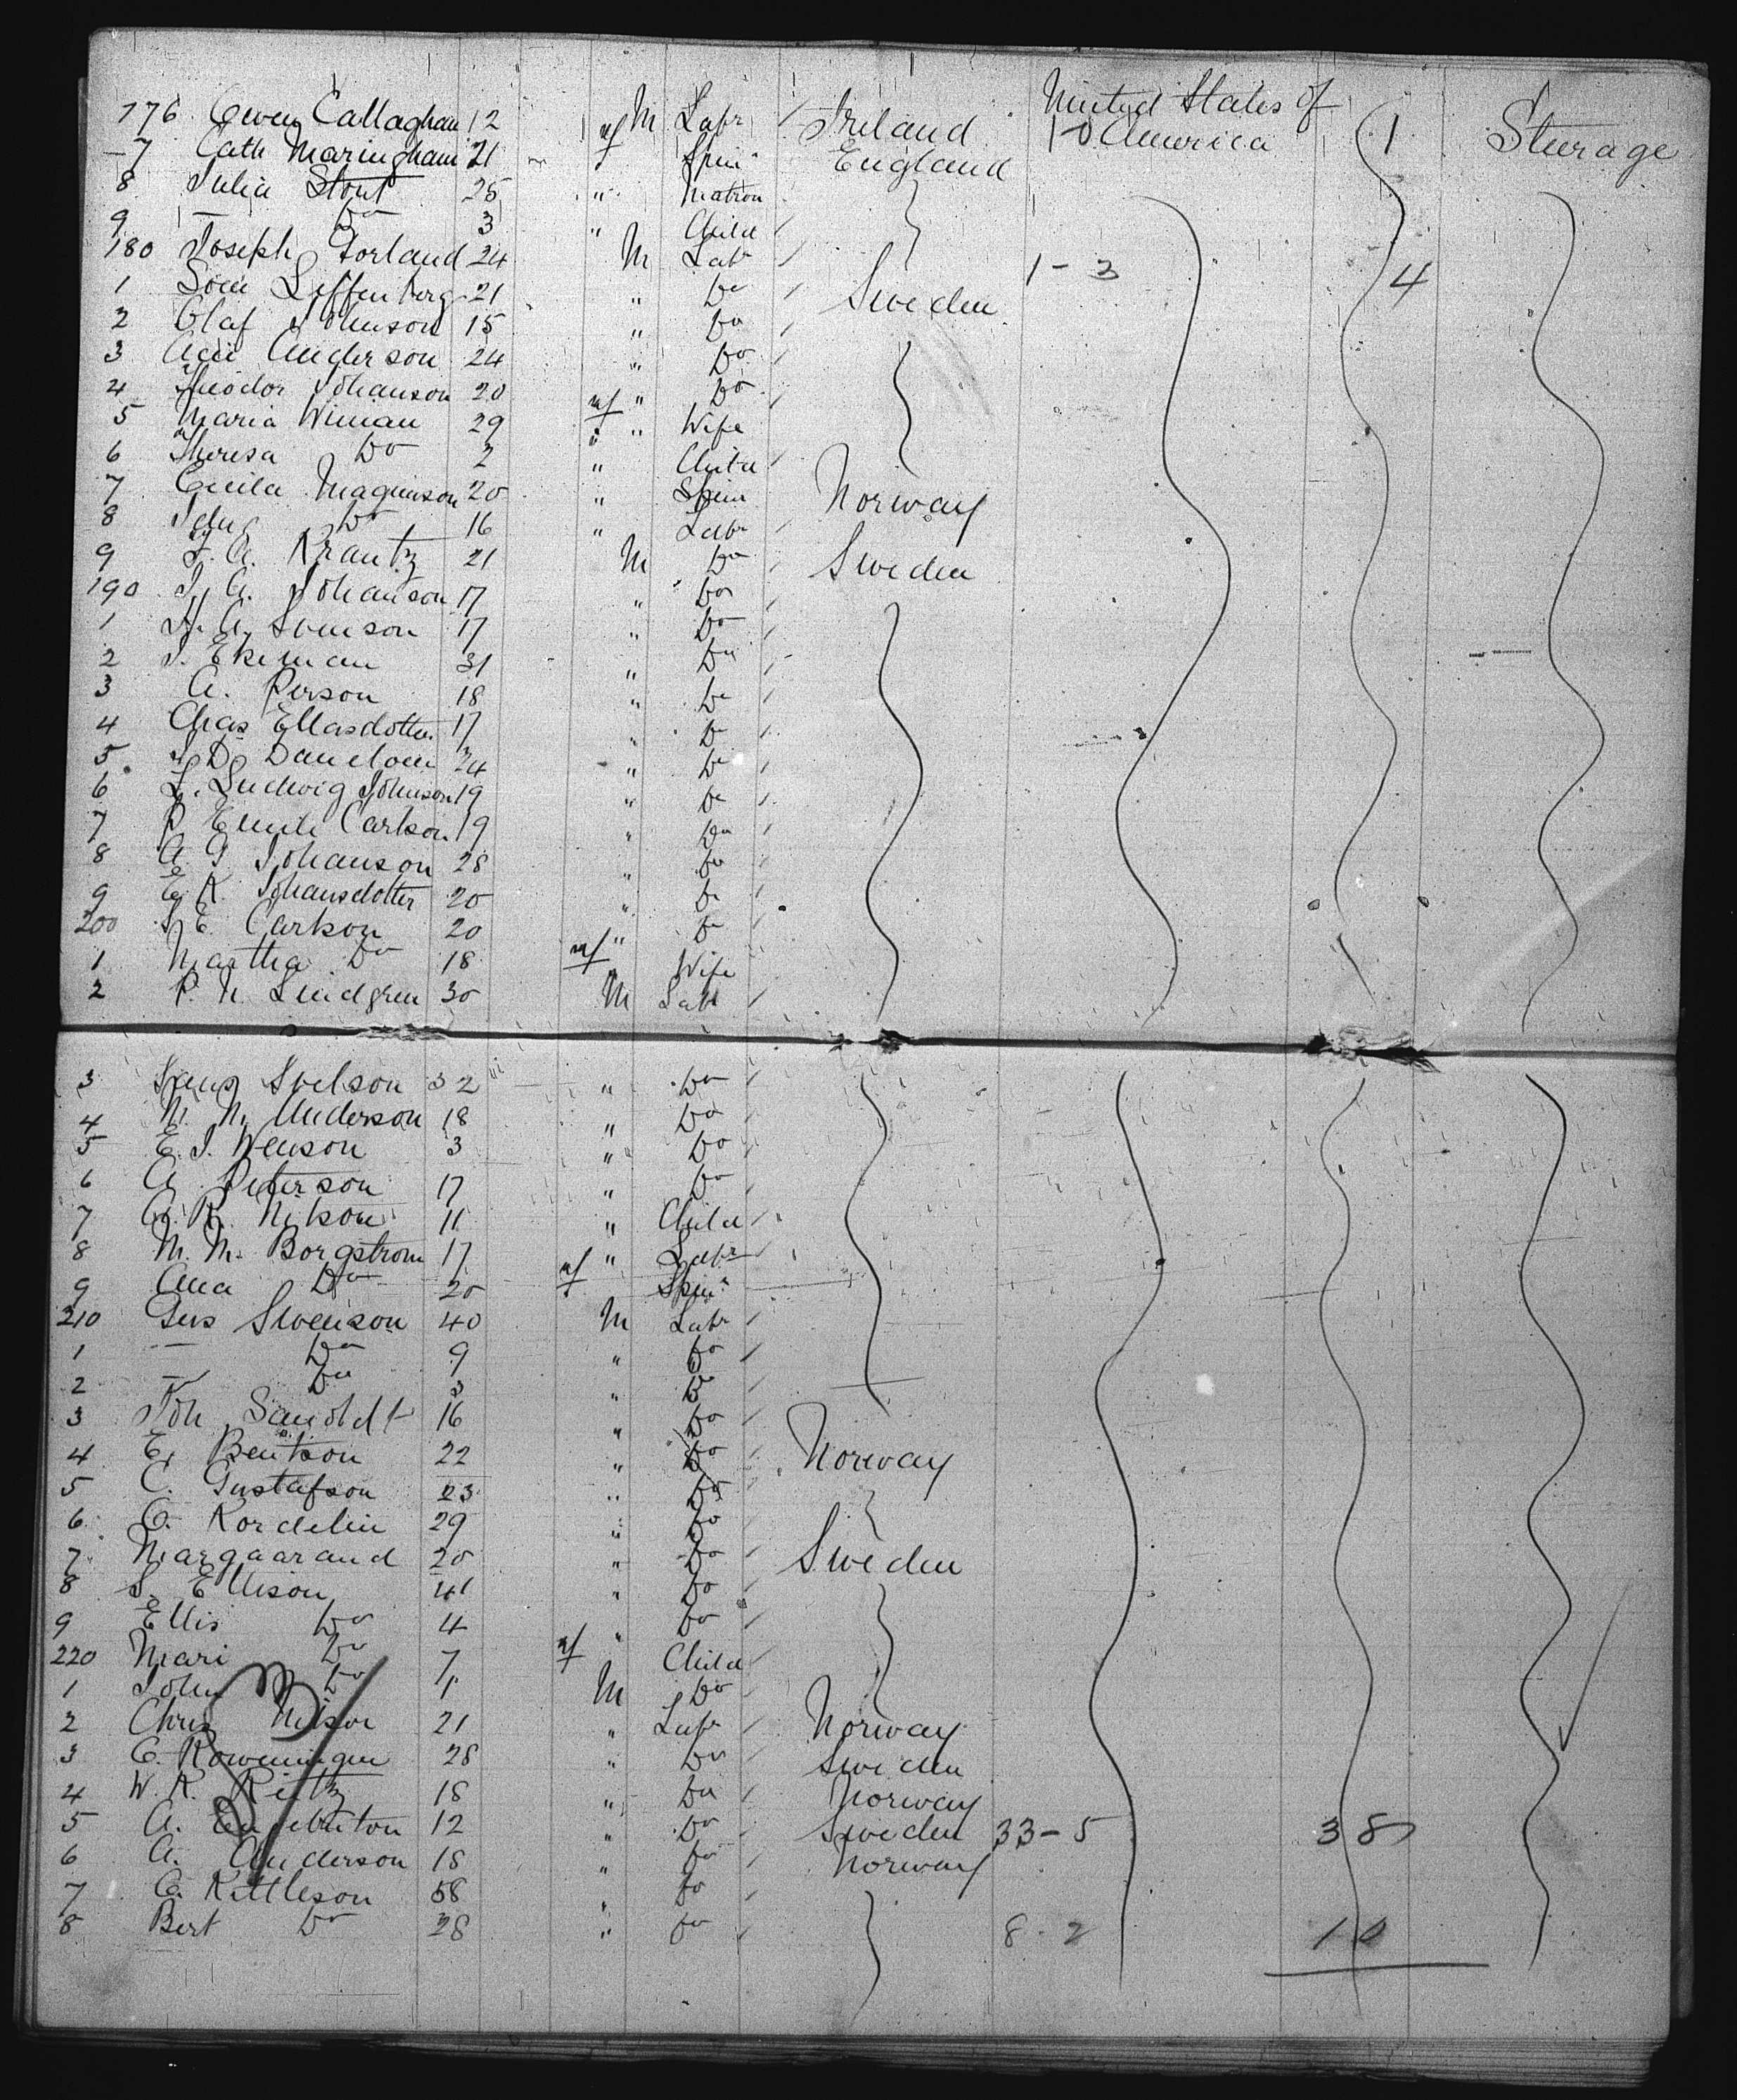 United States of
176 Owen Callaghan 12 M Labr / Ireland 1-0 America 1 Steerage
7 Cath Maringham 21 " f Spinr England
8 Julia Stout 25 " Matron
9 — Do 3 " Child
180 Joseph Gorland 24 M Labr /
1 Leffenberg 21 " Do / Sweden 1-3 4
2 Olaf Johnson 15 " Do /
3 Anderson 24 " Do /
4 Theodor Johanson 20 " Do /
5 Maria Wiman 29 f " Wife
6 Theresa Do 2 " Child /
7 Magnuson 20 " Spin Norway
8 Do 16 " Labr /
9 Krantz 21 M Do / Sweden
190 J. A. Johanson 17 " Do /
1 A. Svenson 17 " Do /
2 J. Ekeman 31 " Do /
3 A. Person 18 " Do /
4 Chas Ellasdotter 17 " Do /
5 24 " Do /
6 L. Ludwig Johnson 19 " Do /
7 P. Emile Carlson 19 " Do /
8 A. J. Johanson 28 " Do /
9 E. K. Johansdotter 20 " Do /
200 E. Carlson 20 " Do /
1 Martha Do 18 f Wife
2 P. N. Lindgren 30 M Labr /
3 32 " Do /
4 N. N. Anderson 18 " Do /
5 E. J. 3 " Do
6 A. Peterson 17 " Do /
7 R. Nilson 11 " Child /
8 M. M. Borgstrom 17 " Labr /
9 Ana Do 20 f Spinr
210 Gus Swenson 40 M Labr /
1 — Do 9 " Do /
2 — Do 3 " Do /
3 Joh 16 " Do /
4 E. Bentson 22 " Do / Norway
5 C. Gustafson 23 " Do /
6 Kordelin 29 " Do / Sweden
7 Margaarand 20 " Do /
8 S. Ellison 41 " Do /
9 Ellis Do 4 " Do /
220 Mari Do 7 f Child /
1 John Do 1 M Do /
2 Chris Nilson 21 " Labr / Norway
3 28 " Do / Sweden
4 W. K. 18 " Do / Norway
5 A. 12 " Do / Sweden 33-5 38
6 A. Anderson 18 " Do / Norway
7 Kittleson 58 " Do /
8 Bert Do 28 " Do / 8-2 10